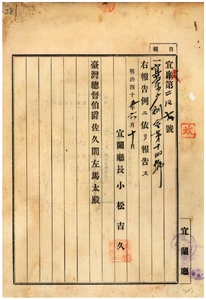 目報
宜廳第二八六號
一宜蘭廳訓令第十四號
右報告例ニ依リ報告ス
明治四十年六月十日
宜蘭廳長小松吉久
臺灣總督伯爵佐久間左馬太殿
宜蘭廳